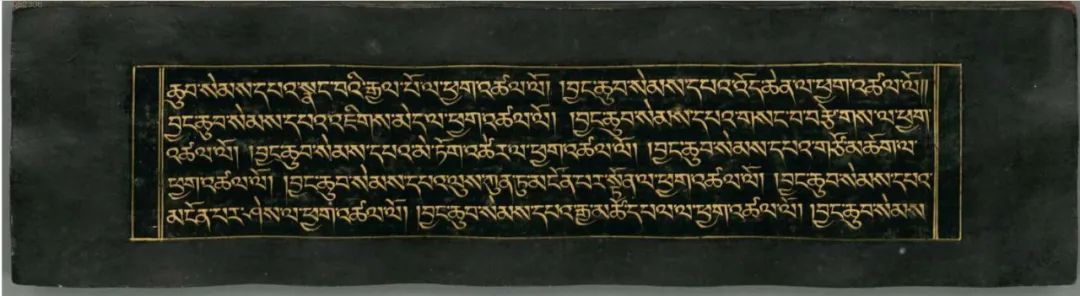 ཆུབ་སེམས་དཔའ་སྣང་བའི་རྒྱལ་པོ་ལ་ཕྱག་འཚལ་ལོ། །བྱང་ཆུབ་སེམས་དཔའ་འོད་ཆེན་ལ་ཕྱག་འཚལ་ལོ།།
བྱང་ཆུབ་སེམས་དཔའ་འཇིགས་མེད་ལ་ཕྱག་འཚལ་ལོ། །བྱང་ཆུབ་སེམས་དཔའ་གསང་བ་བརྩེགས་ལ་ཕྱག
འཚལ་ལོ། །བྱང་ཆུབ་སེམས་དཔའ་མེ་ཏོག་འཚེར་ལ་ཕྱག་འཚལ་ལོ། །བྱང་ཆུབ་སེམས་དཔའ་གཙོ་མཆོག་ལ་
ཕྱག་འཚལ་ལོ། །བྱང་ཆུབ་སེམས་དཔའ་ལུས་ཀུན་ཏུ་མངོན་པར་སྟོན་ལ་ཕྱག་འཚལ་ལོ། །བྱང་ཆུབ་སེམས་དཔའ་
མངོན་པར་ཤེས་ལ་ཕྱག་འཚལ་ལོ། །བྱང་ཆུབ་སེམས་དཔའ་རྒྱ་མཚོ་དཔལ་ལ་ཕྱག་འཚལ་ལོ། །བྱང་ཆུབ་སེམས